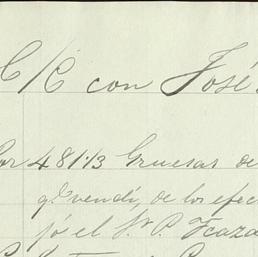 C/C con José
Por 481 1/3 Gruesas de
q.e vendí, de los efec
jó el Sr. P. Ycaza